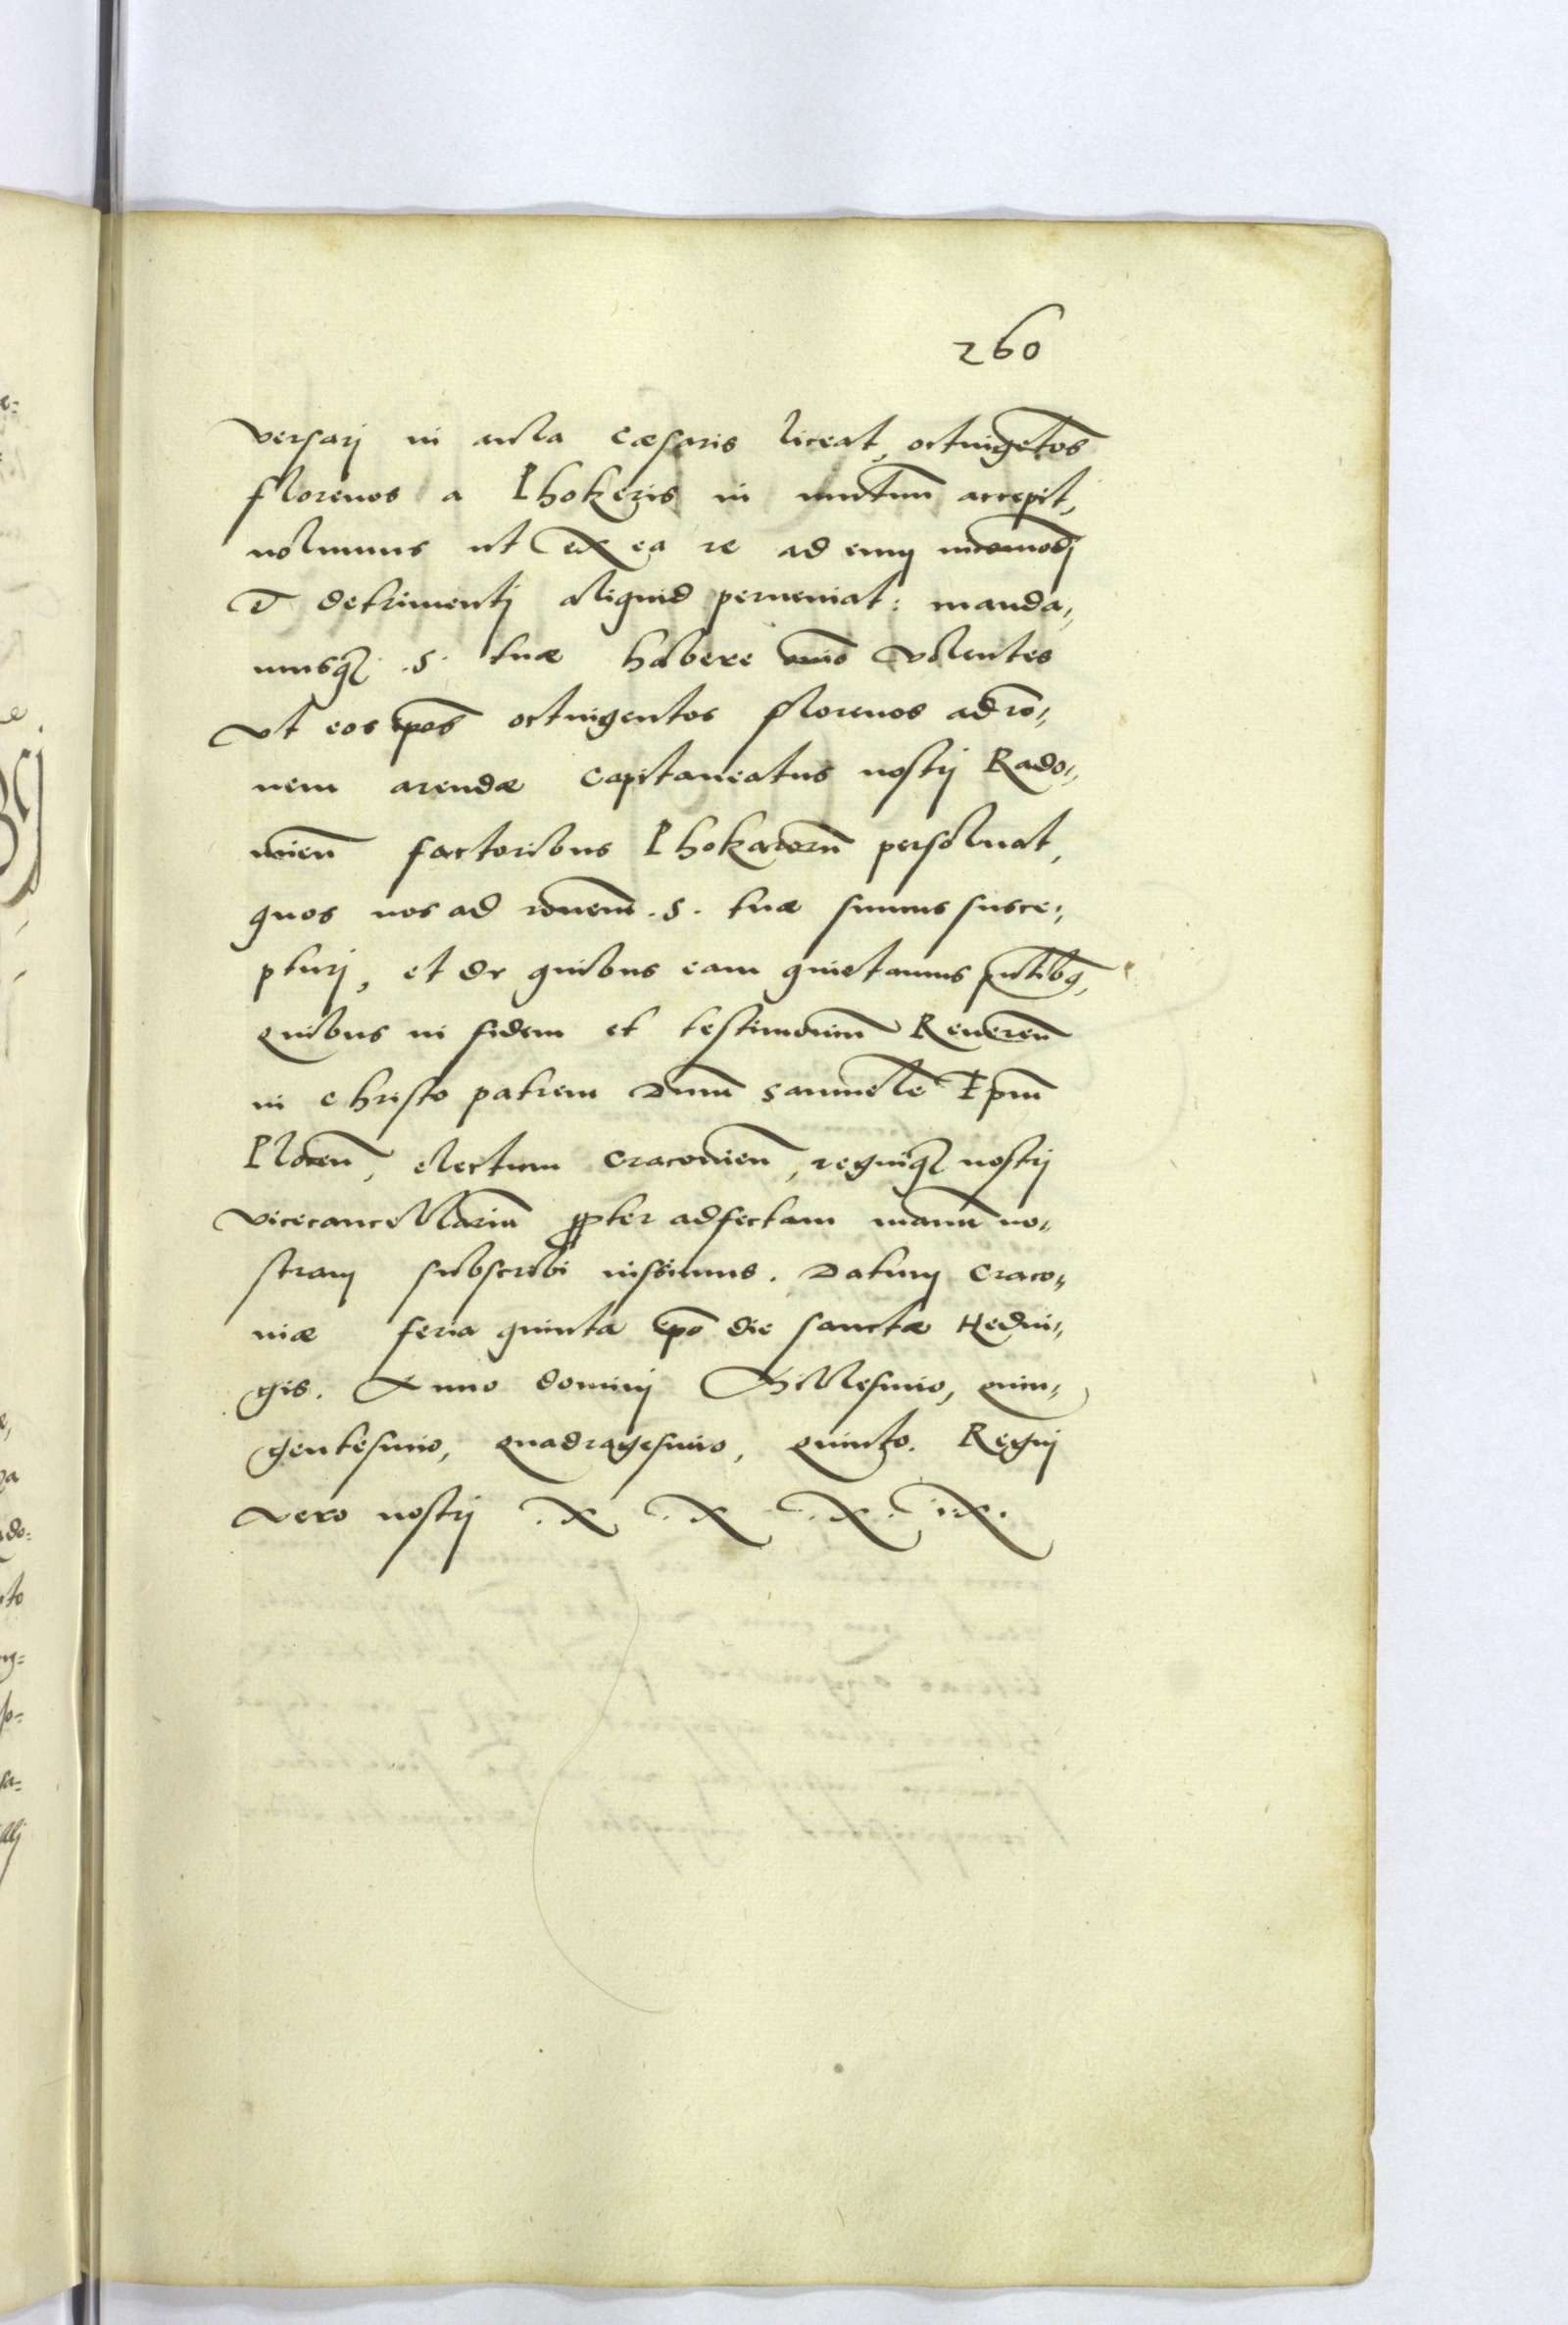 260
versarj in aula cæsaris liceat, octuige͠tos
florenos a Phokeris in mutuu͠ accepit,
nolumus ut ex ea re ad eum inco͠modj
et detrimentj aliquid perueniat: manda,,
musq3 .S. tuæ habere o͠nio volentes
vt eos ip͠os octuigentos florenos ad ro͠,,
nem arendæ capitaneatus nostrj Rado,,
mien͠ factoribus Phokaroru͠ persoluat,
quos nos ad rone͠m .S. tuæ sumus susce,,
pturj, et de quibus eam quietamus pn͠tib9,
quibus in fidem et testimoniu͠ Reueren͠
in christo patrem Dnu͠m Samuele͠ Ep͠m
Plocen͠, electum cracouien͠, regniq3 nostrj
vicecancellariu͠ ꝓpter adfectam manu͠ no,,
stram subscribi iussimus. Datum craco,,
niæ feria quinta ip͠o die sanctæ Hedui,,
gis. Anno dominj Millesimo, quin,,
gentesimo, quadragesimo, quinto. Regnj
vero nostrj .X.X.X.IX.